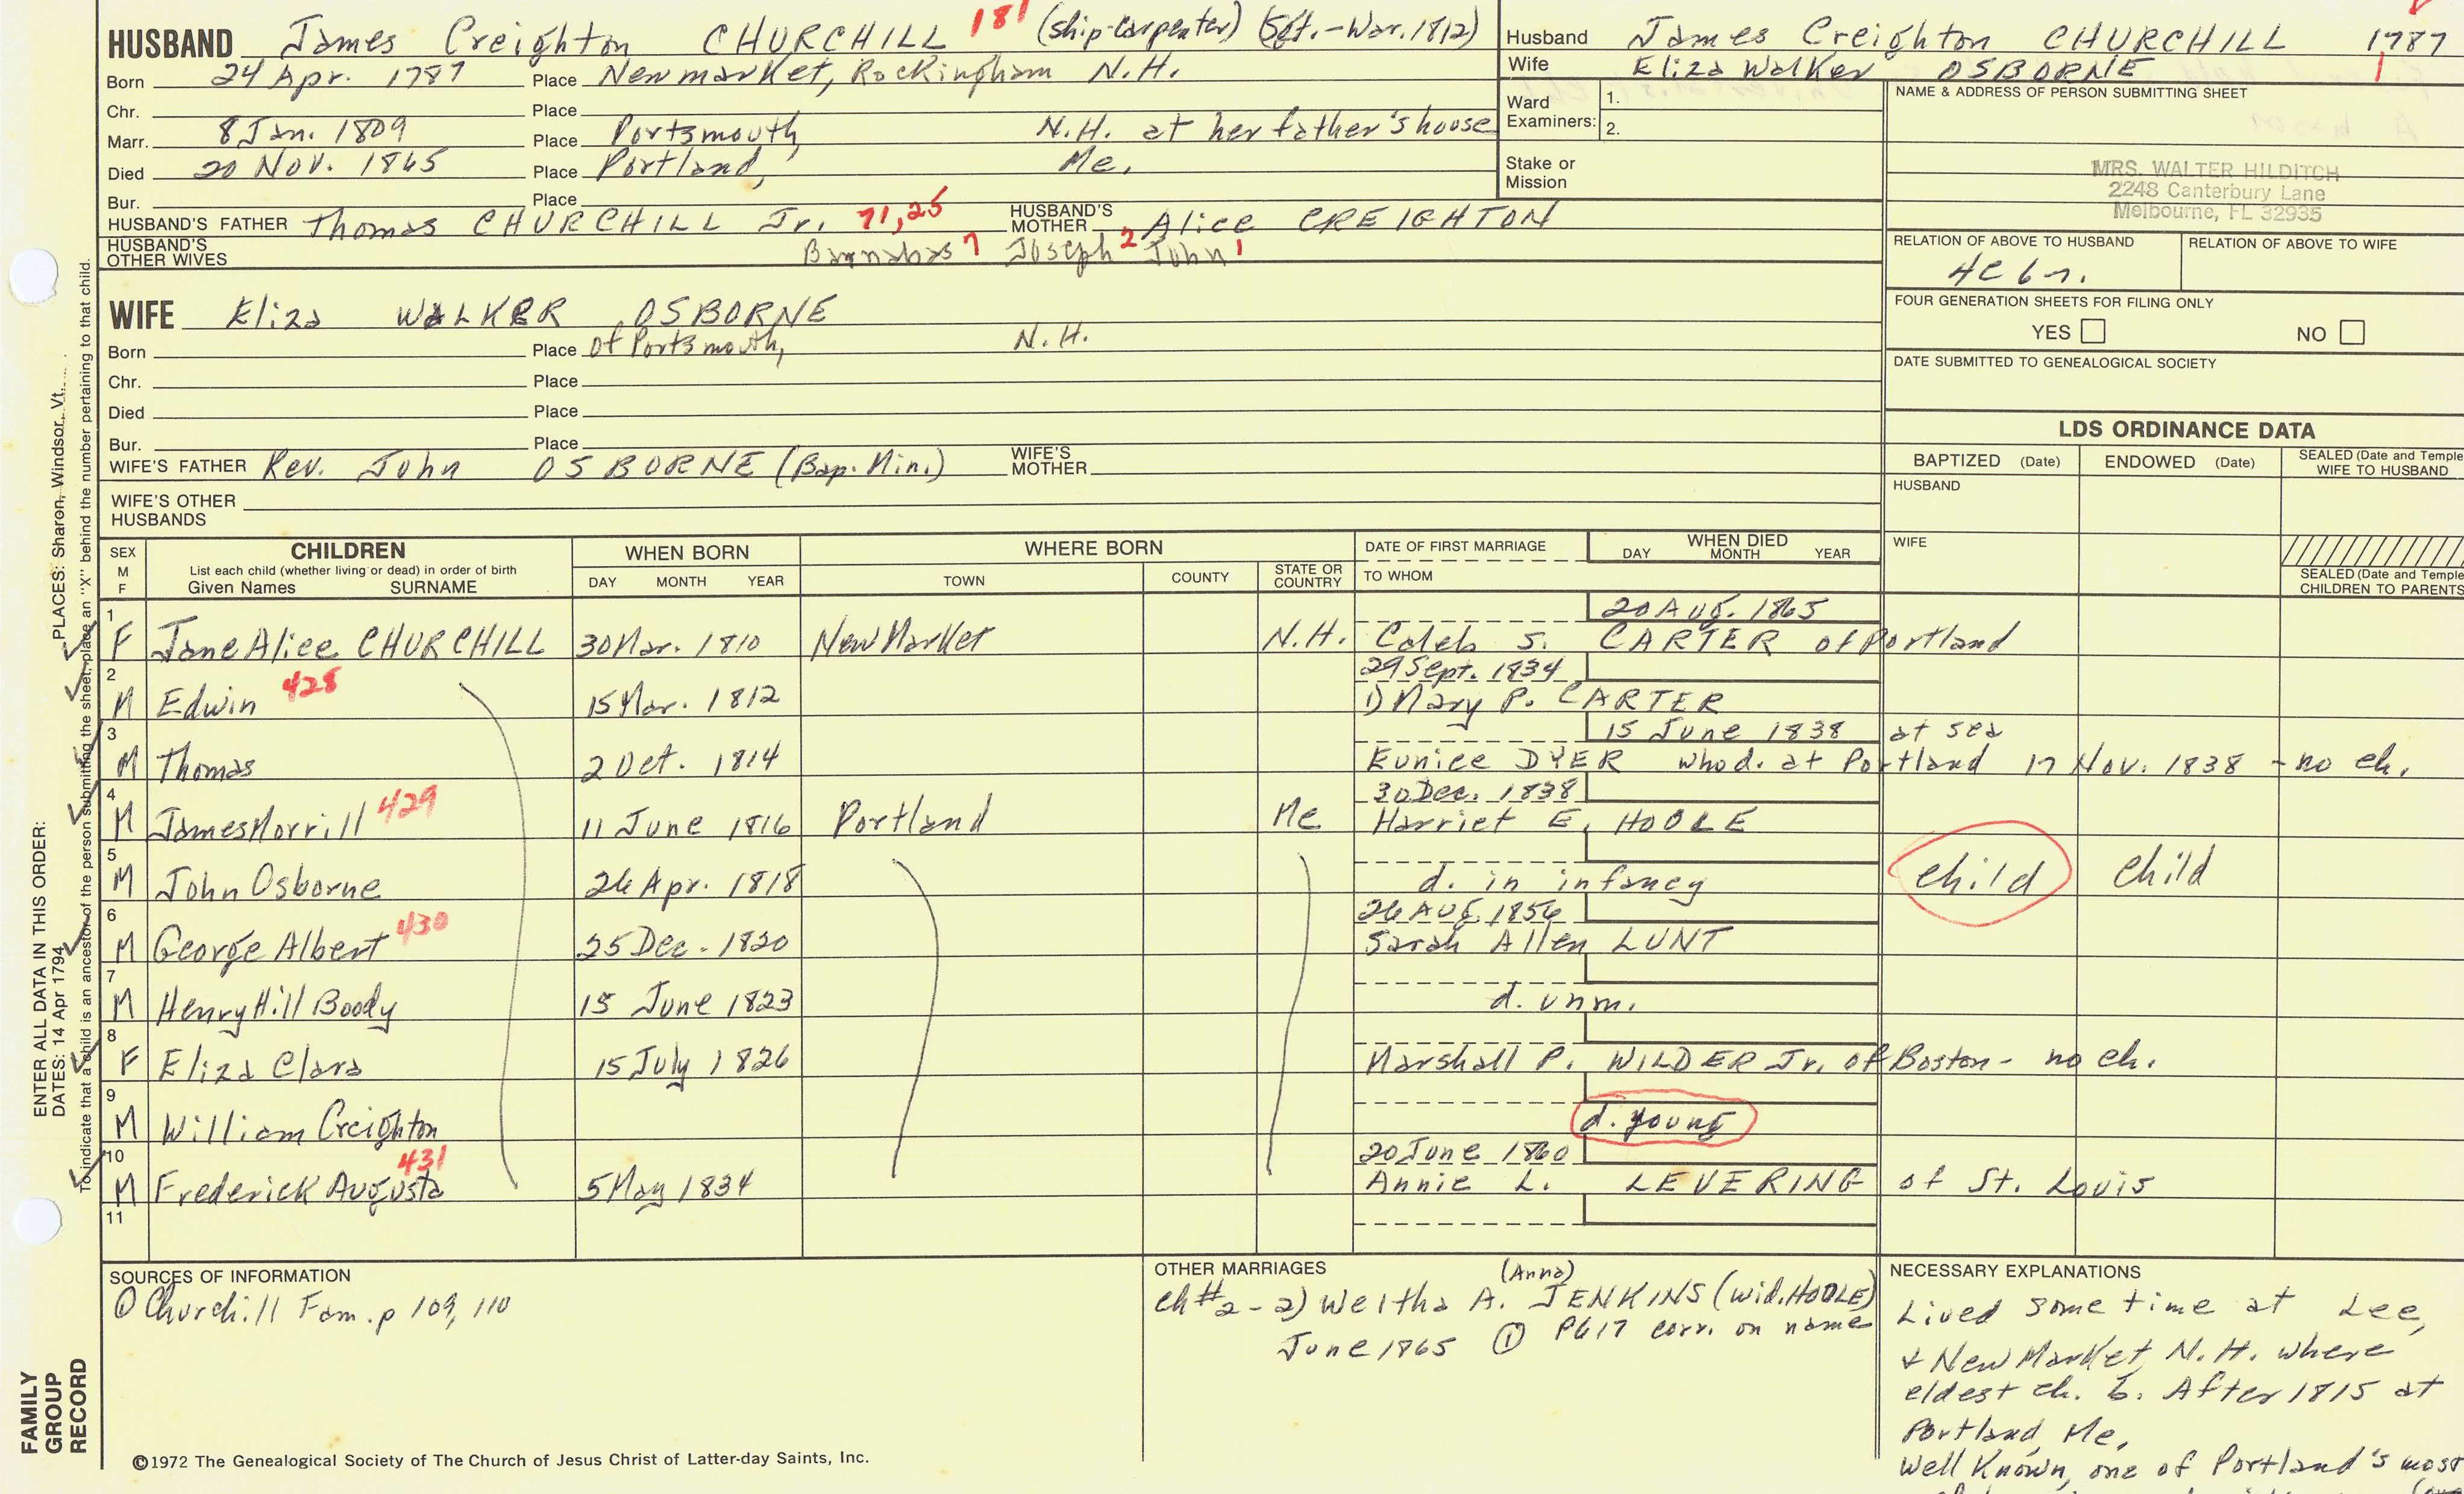 HUSBAND James Creighton CHURCHILL 181 (ship-carpenter) (Sgt.-War.1812)
Born 24 Apr. 1787 Place Newmarket, Rockingham N.H.
Chr. Place
Marr. 8 Jan. 1809 Place Portsmouth, N.H. at her father's house
Died 20 Nov. 1865 Place Portland, Me.
Bur. Place
HUSBAND'S FATHER Thomas CHURCHILL Jr. 71,25 HUSBAND'S MOTHER Alice CREIGHTON
HUSBAND'S OTHER WIVES Barnabas 7 Joseph 2 John 1
Husband James Creighton CHURCHILL 1787
Wife Eliza Walker OSBORNE 1
Ward Examiners: 1.
2.
Stake or Mission
NAME & ADDRESS OF PERSON SUBMITTING SHEET
MRS. WALTER HILDITCH
2248 Canterbury Lane
Melbourne, FL 32935
RELATION OF ABOVE TO HUSBAND RELATION OF ABOVE TO WIFE
4c6r.
FOUR GENERATION SHEETS FOR FILING ONLY
YES NO
DATE SUBMITTED TO GENEALOGICAL SOCIETY
WIFE Eliza WALKER OSBORNE
Born Place of Portsmouth, N.H.
Chr. Place
Died Place
Bur. Place
WIFE'S FATHER Rev. John OSBORNE (Bap. Min.) WIFE'S MOTHER
WIFE'S OTHER HUSBANDS
LDS ORDINANCE DATA
BAPTIZED (Date) ENDOWED (Date) SEALED (Date and Temple
WIFE TO HUSBAND
HUSBAND
WIFE
SEALED (Date and Temple
CHILDREN TO PARENTS
SEX M F CHILDREN List each child (whether living or dead) in order of birth Given Names SURNAME
WHEN BORN DAY MONTH YEAR
WHERE BORN TOWN COUNTY STATE OR COUNTRY
DATE OF FIRST MARRIAGE TO WHOM
WHEN DIED DAY MONTH YEAR
20 Aug. 1865
1 F Jane Alice CHURCHILL 30 Mar. 1810 New Market N.H. Caleb S. CARTER of Portland
29 Sept. 1834
2 M Edwin 428 15 Mar. 1812 1) Mary P. CARTER
15 June 1838 at sea
3 M Thomas 2 Oct. 1814 Eunice DYER who d. at Portland 17 Nov. 1838 - no ch.
30 Dec. 1838
4 M James Morrill 429 11 June 1816 Portland Me Harriet E. HOOLE
5 M John Osborne 26 Apr. 1818 d. in infancy child child
26 Aug. 1856
6 M George Albert 430 25 Dec. 1820 Sarah Allen LUNT
7 M Henry Hill Boody 15 June 1823 d. unm.
8 F Eliza Clara 15 July 1826 Marshall P. WILDER Jr. of Boston - no ch.
9 M William Creighton d. young
20 June 1860
10 M Frederick Augusta 431 5 May 1834 Annie L. LEVERING of St. Louis
11
SOURCES OF INFORMATION
① Churchill Fam. p 109, 110
OTHER MARRIAGES (Anna)
ch #2 - 2) Weltha A. JENKINS (wid. HOOLE)
June 1865 ① P617 corr. on name
NECESSARY EXPLANATIONS
Lived some time at Lee,
+ New Market, N.H. where
eldest ch. b. After 1815 at
Portland, Me.
Well known, one of Portland's most
©1972 The Genealogical Society of The Church of Jesus Christ of Latter-day Saints, Inc.
FAMILY GROUP RECORD
ENTER ALL DATA IN THIS ORDER:
DATES: 14 Apr 1794
PLACES: Sharon, Windsor, Vt.
To indicate that a child is an ancestor of the person submitting the sheet, place an "X" behind the number pertaining to that child.